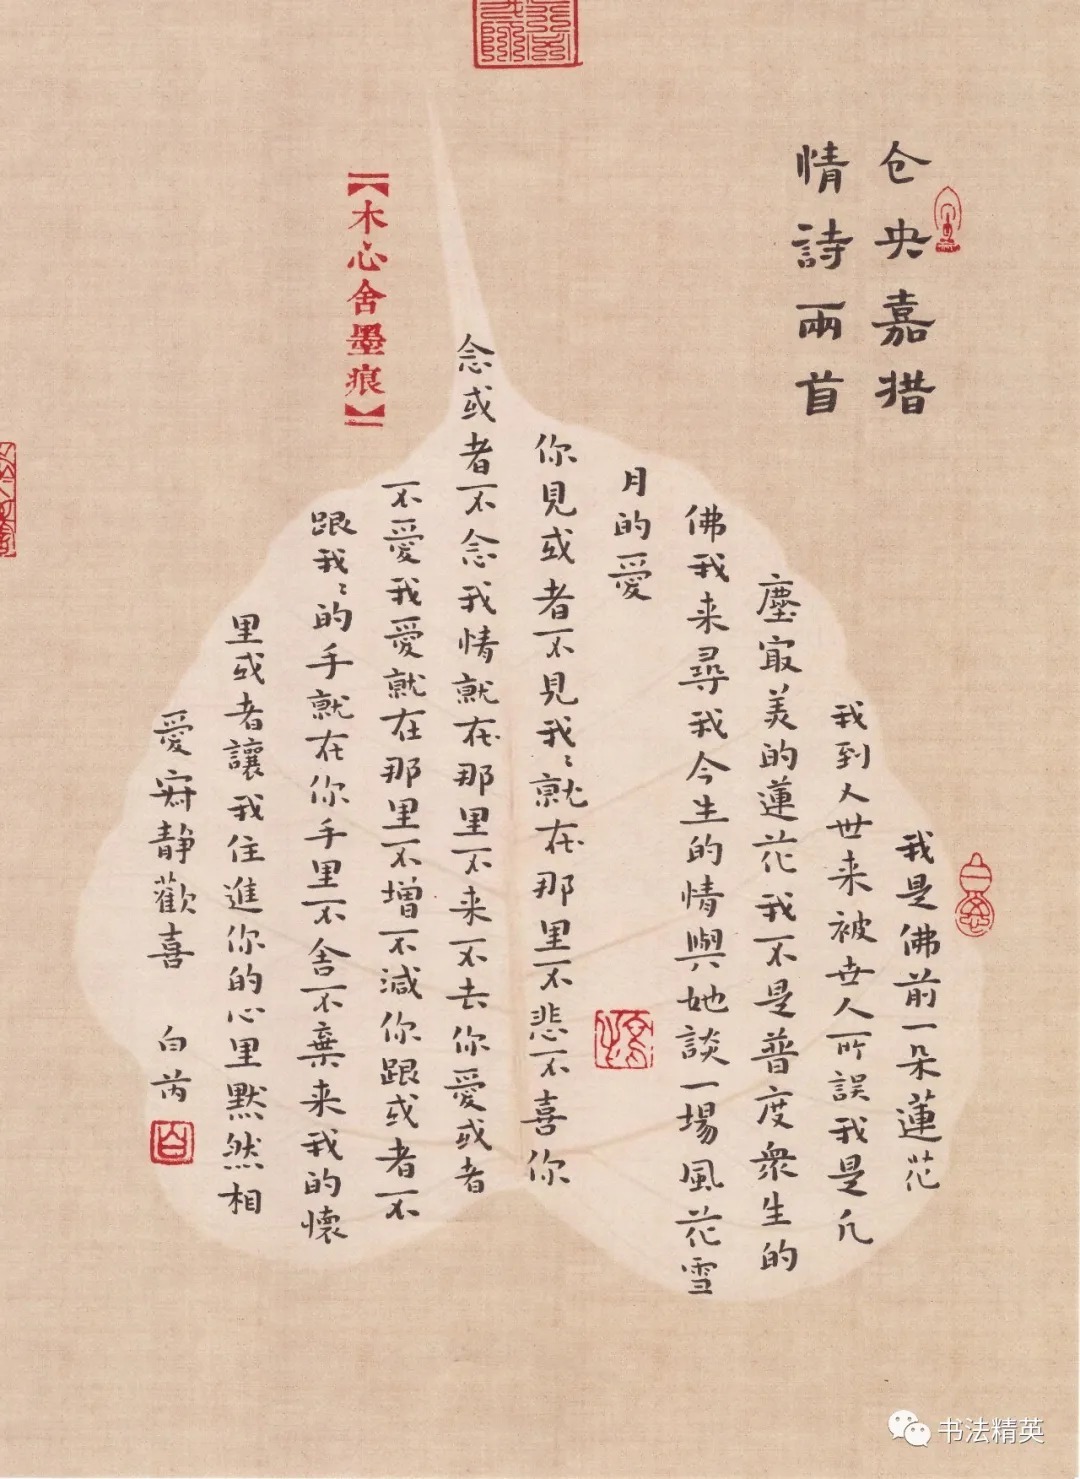 仓央嘉措
情詩兩首
我是佛前一朵蓮花
我到人世来被世人所誤我是凡
塵冣美的蓮花我不是普度衆生的
佛我来尋我今生的情與她談一場風花雪
月的愛
你見或者不見我〻就在那里不悲不喜你
念或者不念我情就在那里不来不去你愛或者
不愛我愛就在那里不增不減你跟或者不
跟我〻的手就在你手里不舍不棄来我的懷
里或者讓我住進你的心里默然相
愛寂静歡喜 白芮
【木心舍墨痕】
书法精英